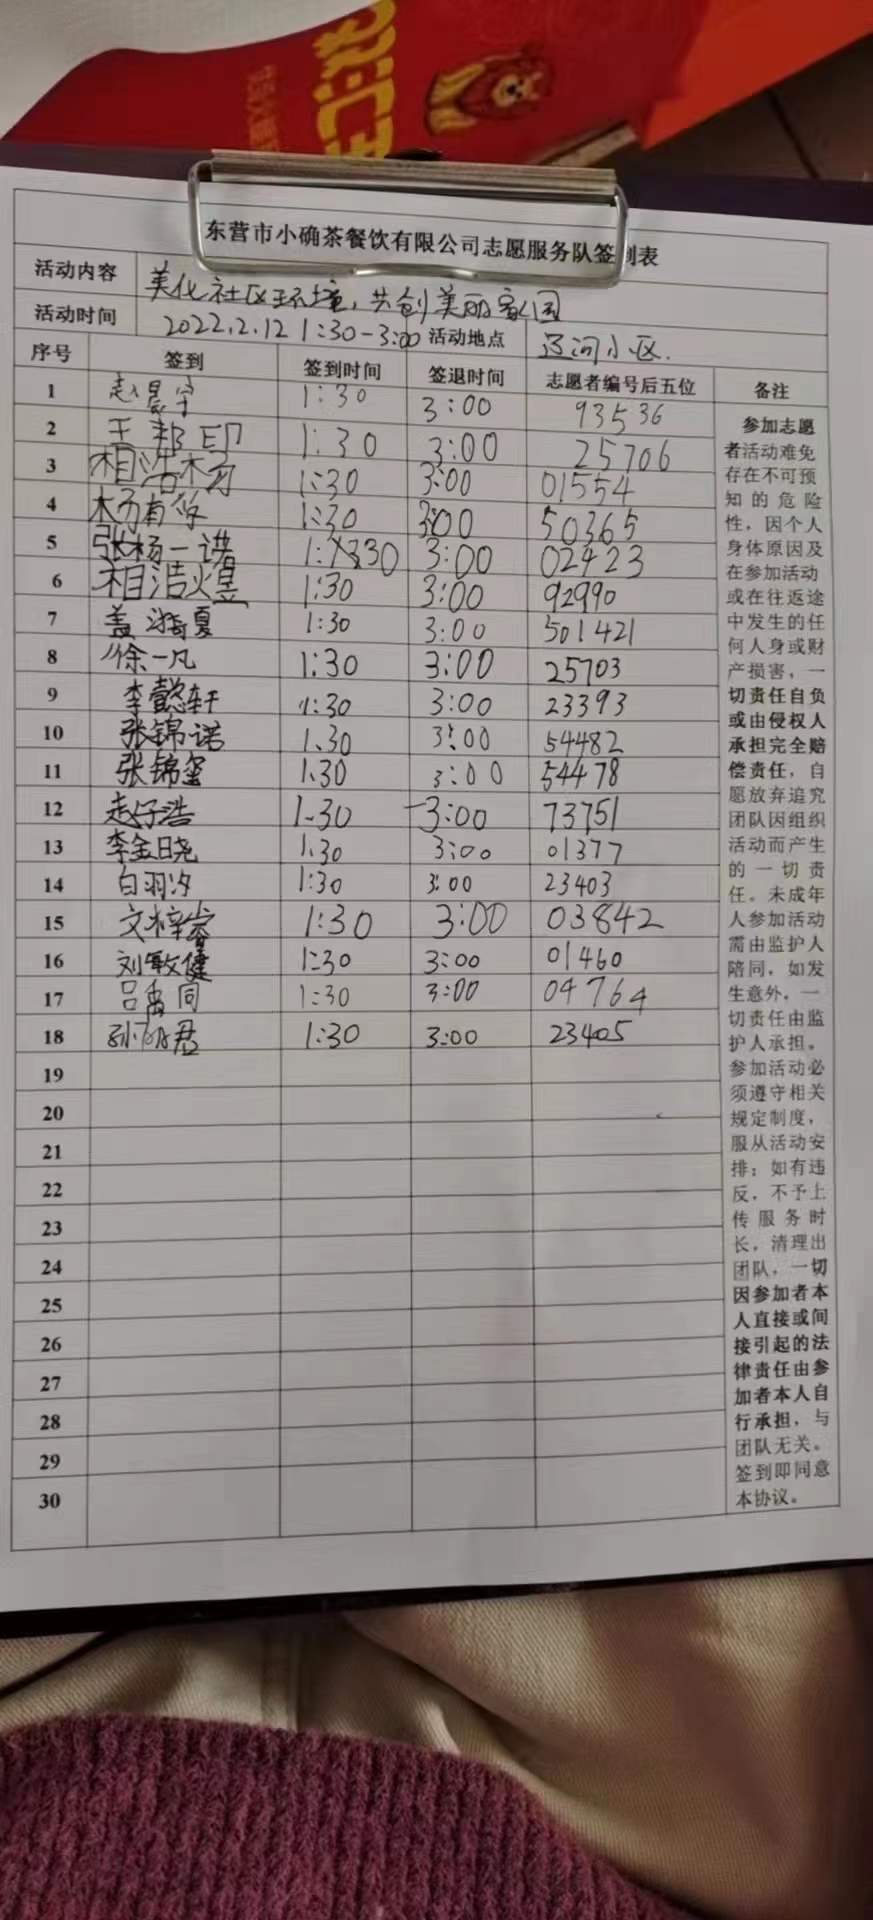 东营市小确茶餐饮有限公司志愿服务队签到表
活动内容 美化社区环境,共创美丽家园
活动时间 2022.2.12 1:30-3:00 活动地点 辽河小区.
序号 签到 签到时间 签退时间 志愿者编号后五位 备注
1 赵晨宇 1:30 3:00 93536
2 王邦印 1:30 3:00 25706
3 相浩杨 1:30 3:00 01554
4 杨甫华 1:30 3:00 50365
5 张杨一诺 1:30 3:00 02423
6 相浩煜 1:30 3:00 92990
7 盖 夏 1:30 3:00 501421
8 徐一凡 1:30 3:00 25703
9 李懿轩 1:30 3:00 23393
10 张锦诺 1.30 3:00 54482
11 张锦玺 1.30 3:00 54478
12 赵子浩 1-30 3:00 73751
13 李金晓 1.30 3:00 01377
14 白羽汐 1:30 3:00 23403
15 文梓睿 1:30 3:00 03842
16 刘敏健 1:30 3:00 01460
17 吕禹同 1:30 3:00 04764
18 孙 君 1:30 3:00 23405
19
20
21
22
23
24
25
26
27
28
29
30
参加志愿
者活动难免
存在不可预
知的危险
性,因个人
身体原因及
在参加活动
或在往返途
中发生的任
何人身或财
产损害,一
切责任自负
或由侵权人
承担完全赔
偿责任,自
愿放弃追究
团队因组织
活动而产生
的一切责
任。未成年
人参加活动
需由监护人
陪同,如发
生意外,一
切责任由监
护人承担。
参加活动必
须遵守相关
规定制度,
服从活动安
排;如有违
反,不予上
传服务时
长,清理出
团队,一切
因参加者本
人直接或间
接引起的法
律责任由参
加者本人自
行承担,与
团队无关。
签到即同意
本协议。